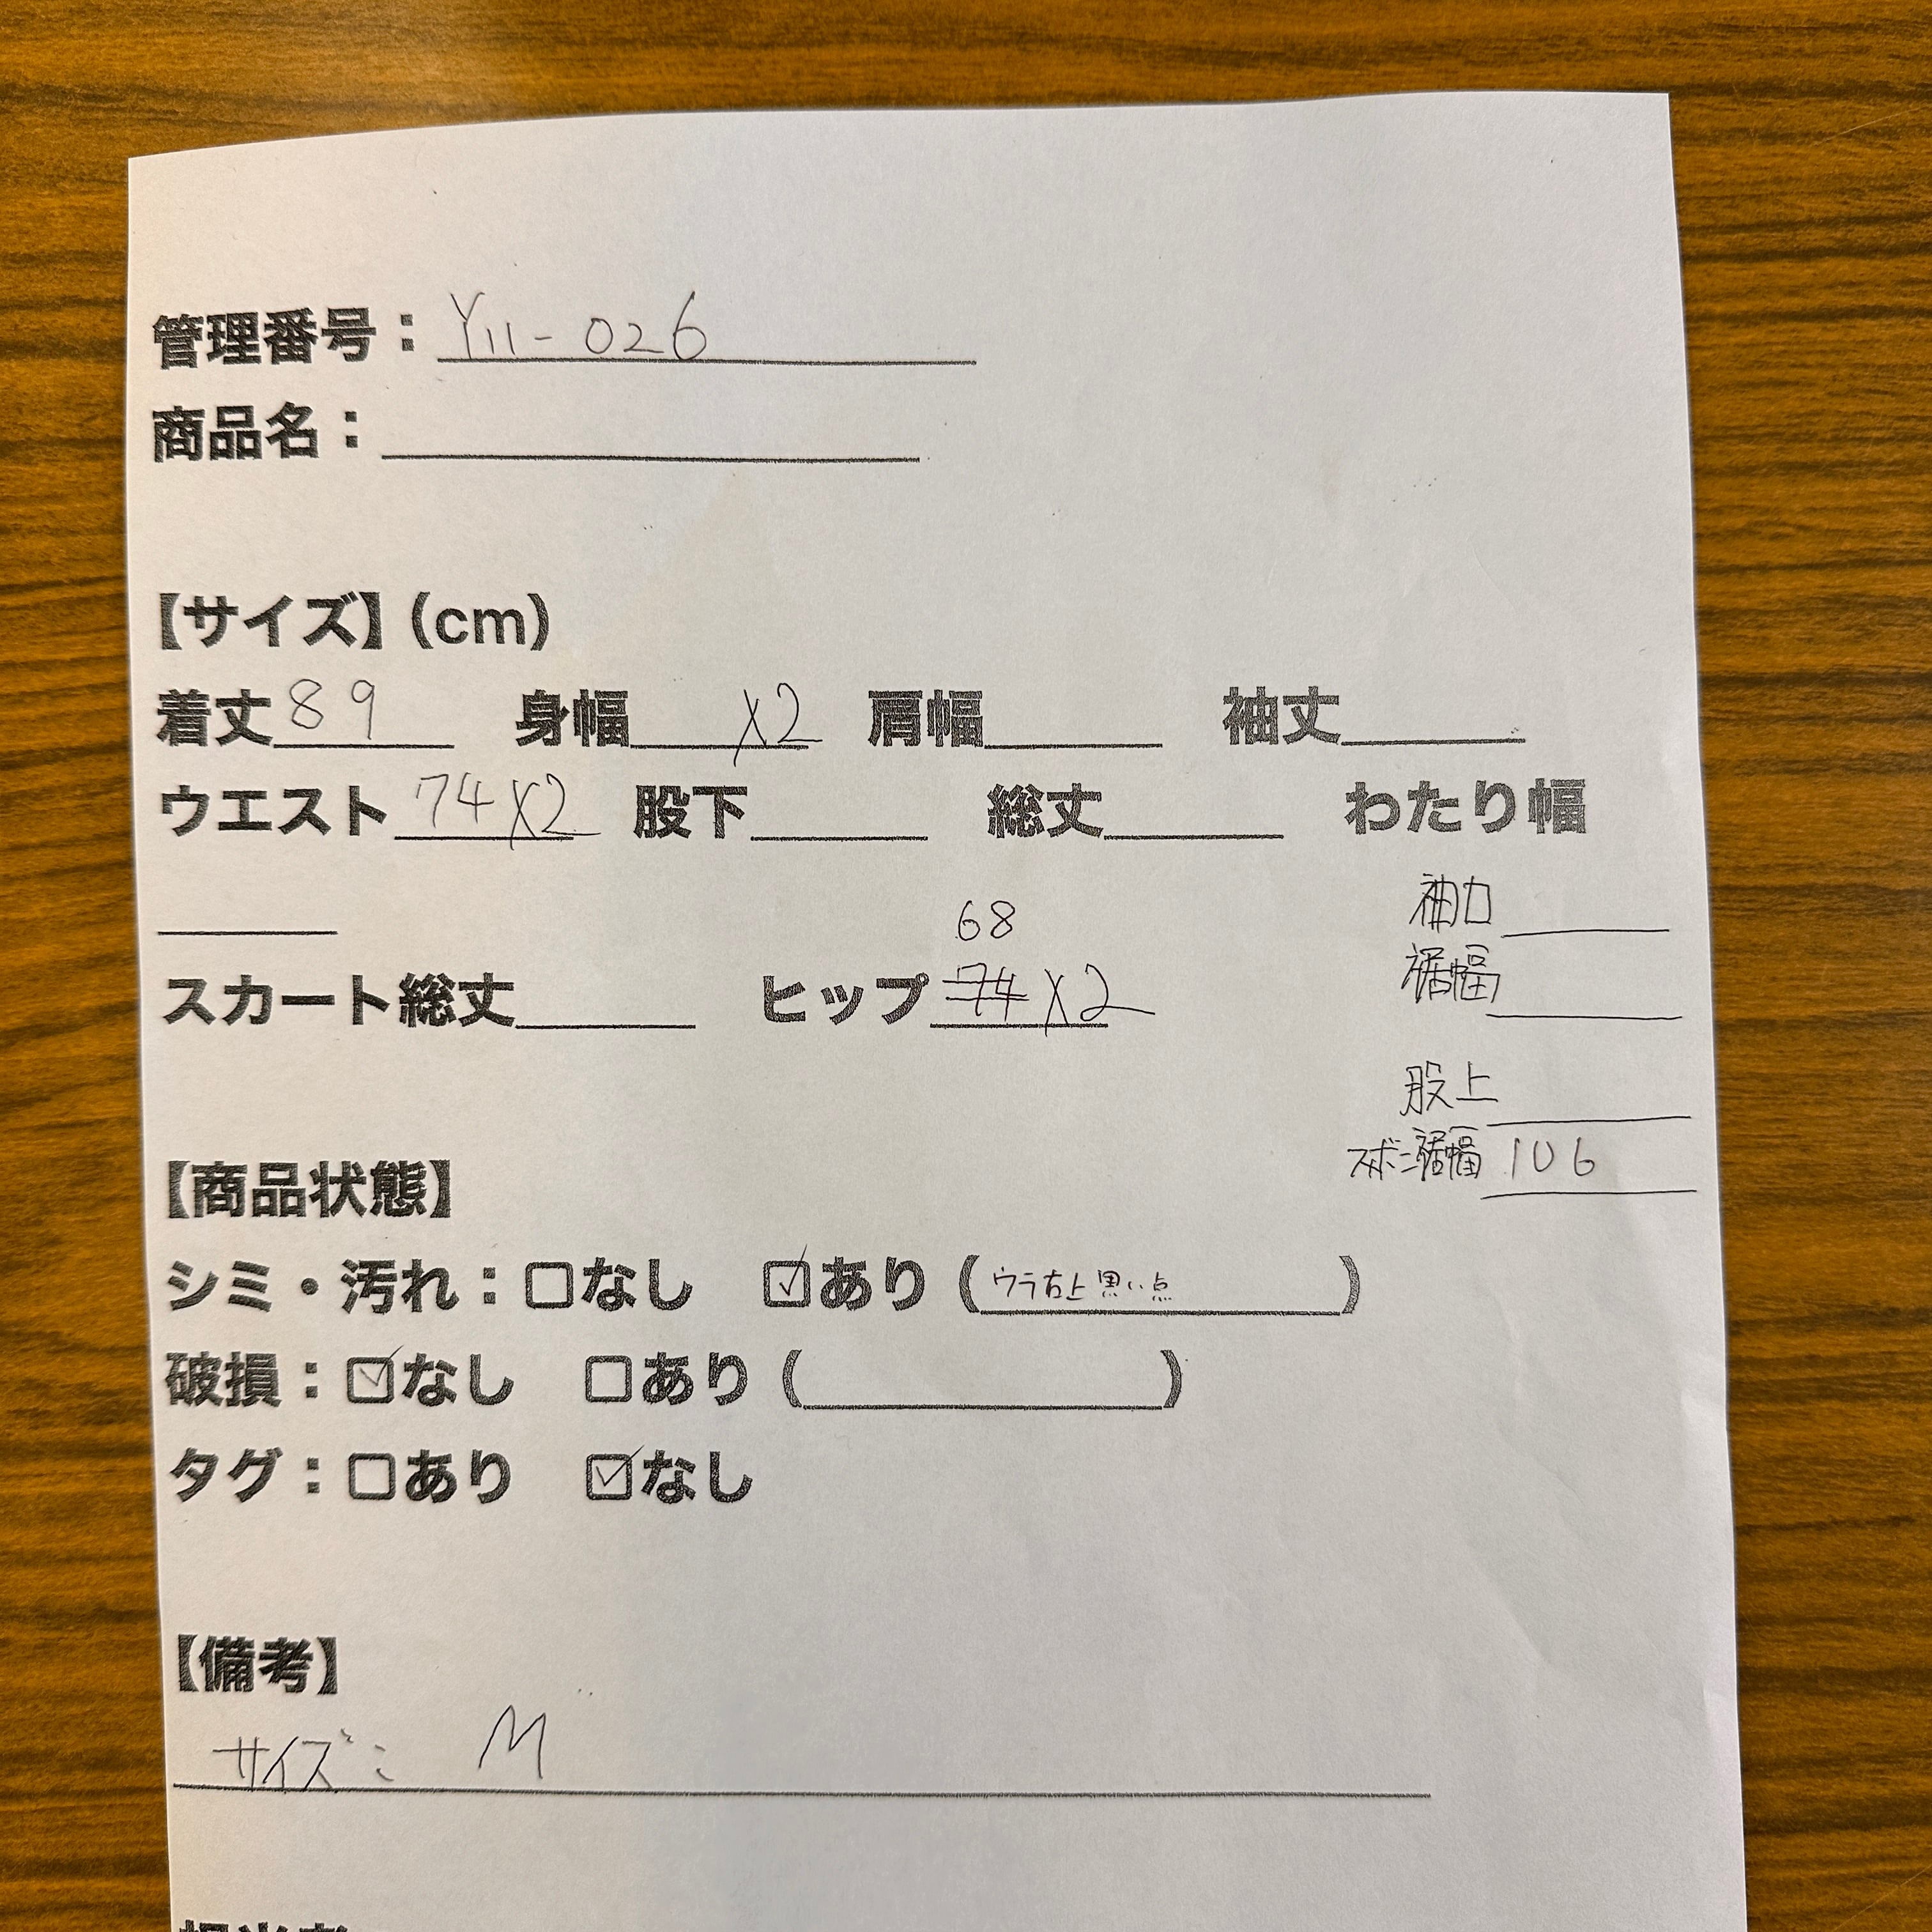 管理番号：Y11-026
商品名：
【サイズ】(cm)
着丈89 身幅 X2 肩幅 袖丈
ウエスト74X2 股下 総丈 わたり幅
袖口
68
裾幅
スカート総丈 ヒップ74X2
股上
ズボン裾幅 106
【商品状態】
シミ・汚れ：☐なし ☑あり（ウラ右上黒い点）
破損：☑なし ☐あり（ ）
タグ：☐あり ☑なし
【備考】
サイズ： M